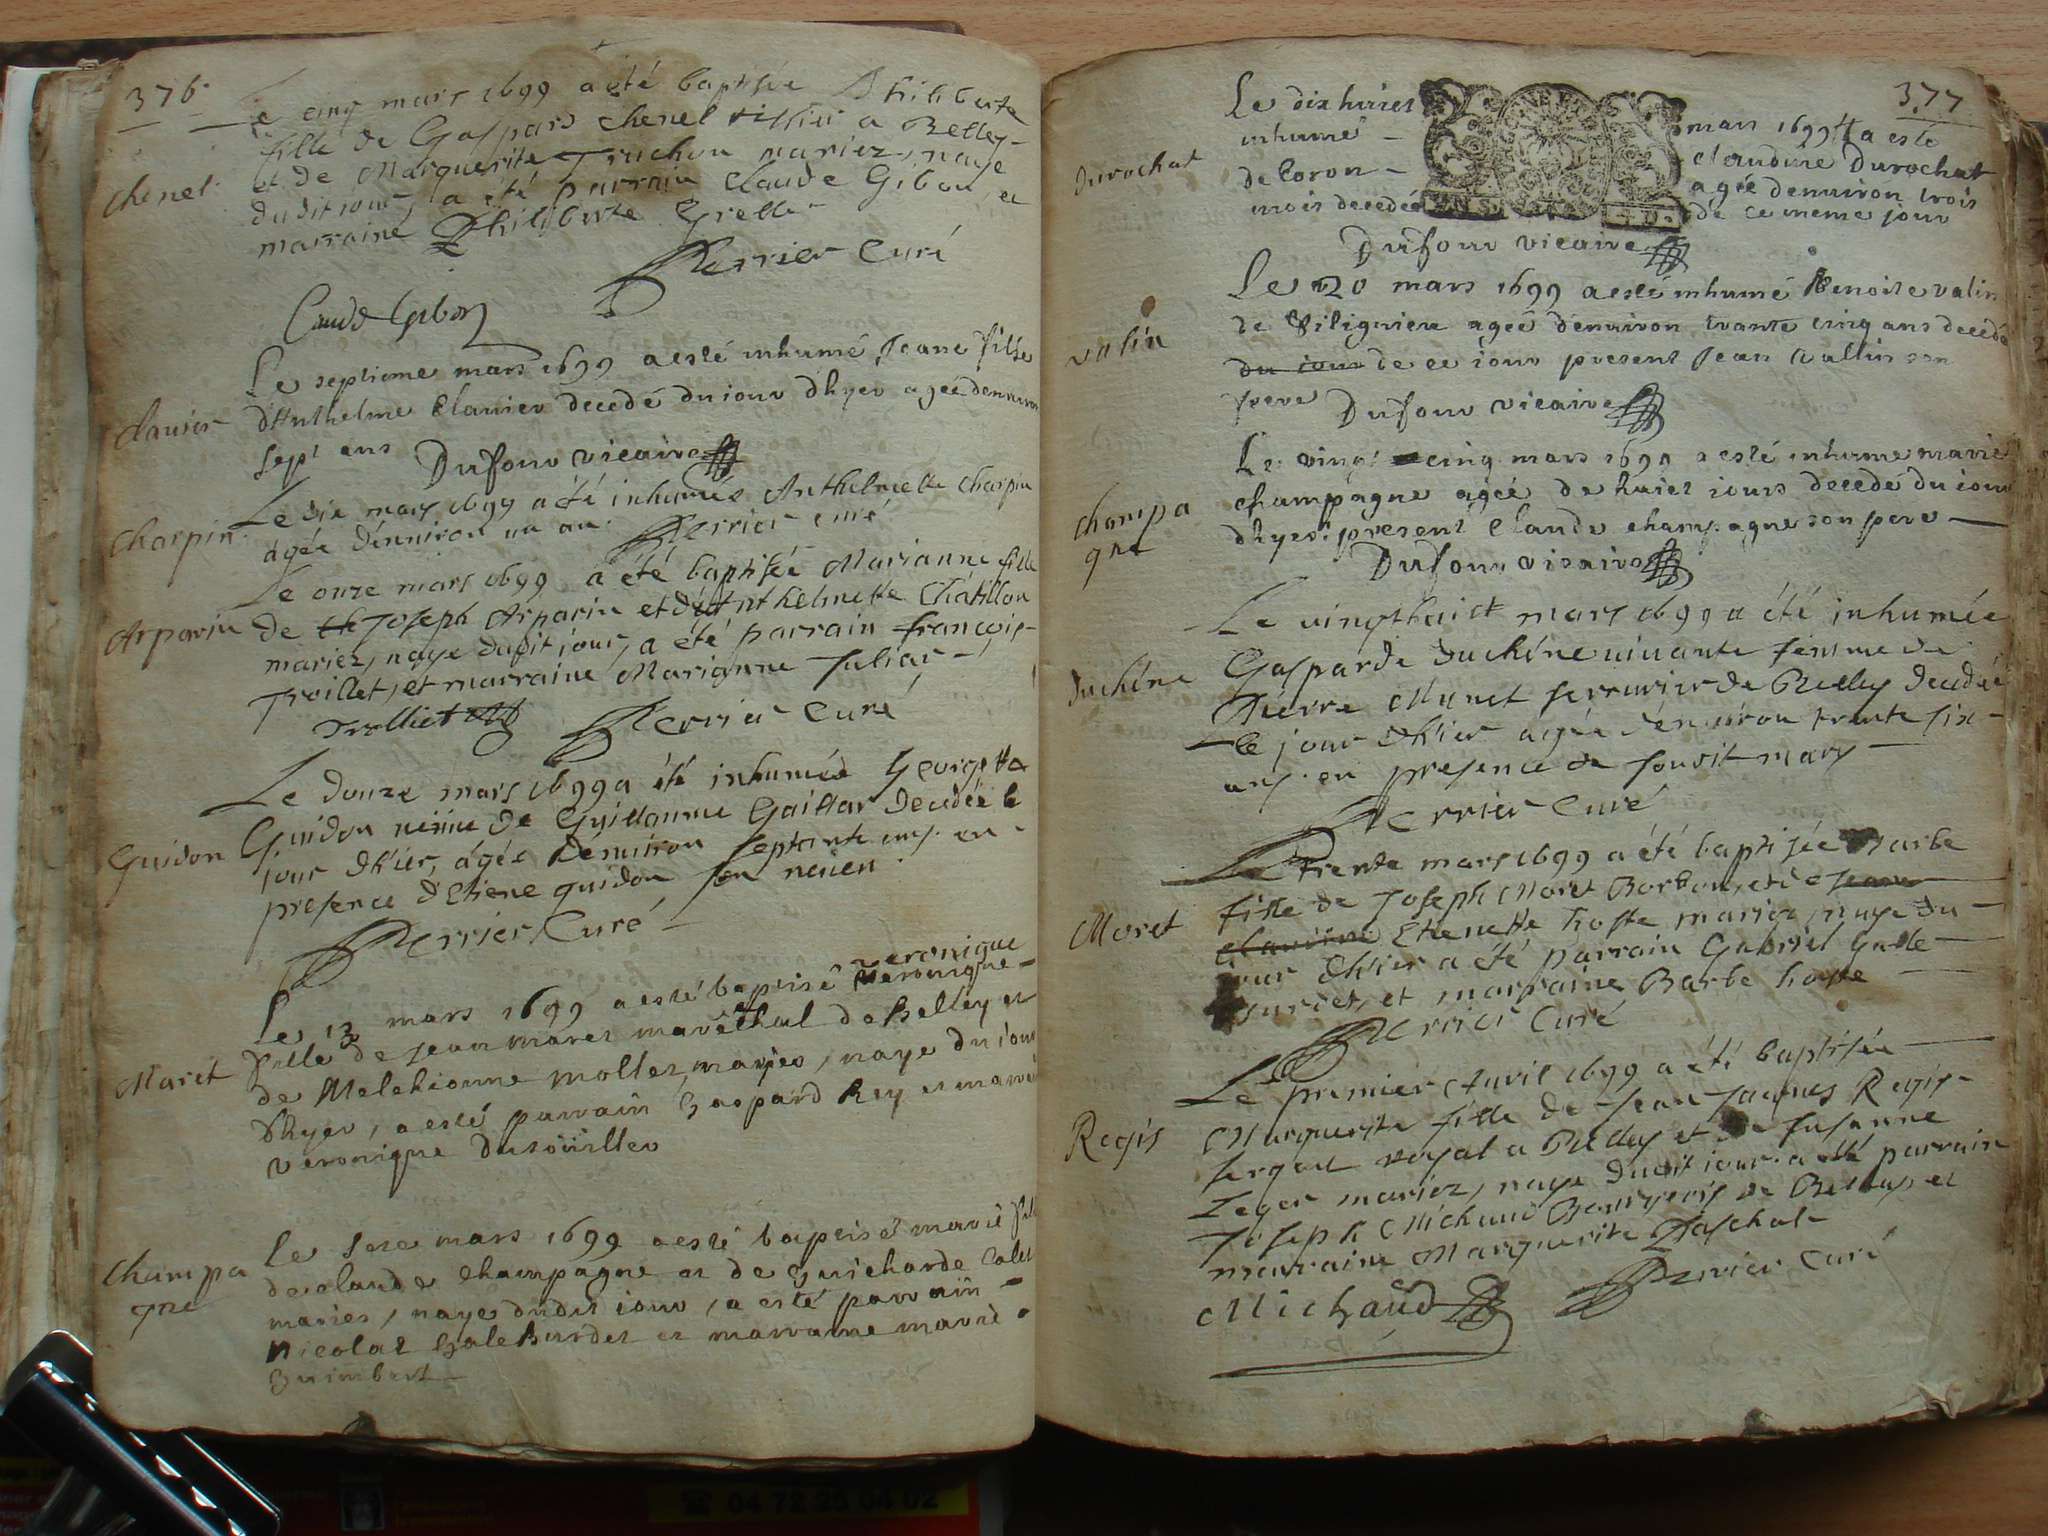 376
Le cinq mars 1699 a été baptisée Philiberte
fille de Gaspard Chenel tissier a Belley
et de Marguerite Truchon mariez, naye
Chenel
dudit jour, a été parrain Claude Gibon, et
marraine Philiberte Grellet
Perrier Curé
Claude Gibon
Le septieme mars 1699 a esté inhumé Jeane fille
Clavier
d'Anthelme Clavier decedé du iour dhyer agée denuiron
sept ans Dufour vicaire
Le dix mars 1699 a été inhumée Anthelmette Charpin
Charpin
agée d'enuiron un an. Perrier curé
Le onze mars 1699 a été baptisée Marianne fille
Arparin
de Joseph Arparin et d'Anthelmette Châtillon
mariez, naye dudit jour, a été parrain françois
Troillet, et marraine Marianne Julias
Trolliet Perrier Curé
Le douze mars 1699 a été inhumée Georgette
Guidon
Guidon veuve de Guillaume Gaillar decedée le
jour d'hier, agée d'enuiron septante ans. en
presence d'Etiene guidon son neueu
Perrier Curé
veronique
Le 13 mars 1699 a esté baptisé veronique
Maret
fille de Jean maret maréchal de Belley et
de Melchionne mollet, mariés, naye du iour
dhyer, a esté parrain Gaspard Rey et marraine
veronique Dusoüillet
Le seze mars 1699 a esté baptisé marie fille
Champa
gne
de claude Champagne et de Guicharde Colet
maries, naye dudit iour, a esté parrain
Nicolas Galeburdet et marraine marie
Guimbert
377
Le dix huiet mars 1699 a esté
inhumé claudine Durochat
Durochat
de Coron agée denuiron trois
mois decedée de ce meme jour
Dufour vicaire
Le 20 mars 1699 a esté inhumé Benoite valin
valin
de Silignieu agée denuiron trante cinq ans decedé
du iour de ce iour present Jean Vallin son
pere Dufour vicaire
Le vingt cinq mars 1699 a esté inhumé marie
Champa
gne
champagne agée de huiet iours decedé du iour
dhyer present Claude champagne son pere
Dufour vicaire
Le vingthuict mars 1699 a été inhumée
Duchéne
Gasparde Duchéne uiuante femme de
Pierre Munet serrurier de Belley decedée
le jour d'hier agée d'enuiron trente six
ans. en presence de soudit mary
Perrier Curé
Le trente mars 1699 a été baptisée Barbe
Moret
fille de Joseph Moret Borbon, et de
Etienette hoste mariez, naye du
jour d'hier a été parrain Gabriel Galle
burdet, et marraine Barbe hoste
Perrier Curé
Le premier Auril 1699 a été baptisée
Regis
Marguerite fille de Jean Jaques Regis
sergent royal a Belley et de Susanne
Leger mariez, naye dudit iour. a été parrain
Joseph Michaud Bourgeois de Belley, et
marraine Marguerite Paschal
Perrier Curé
Michaud
04 72 25 04 02